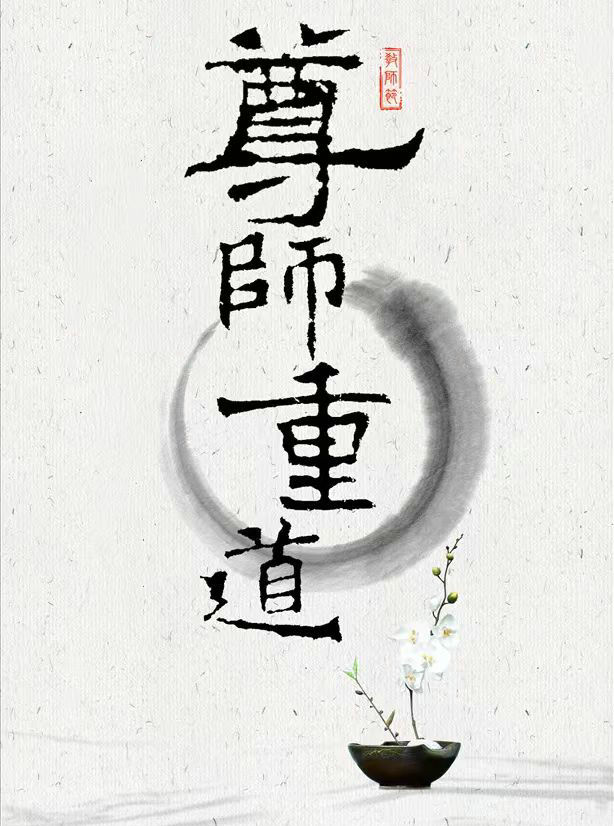 尊師重道
教師節